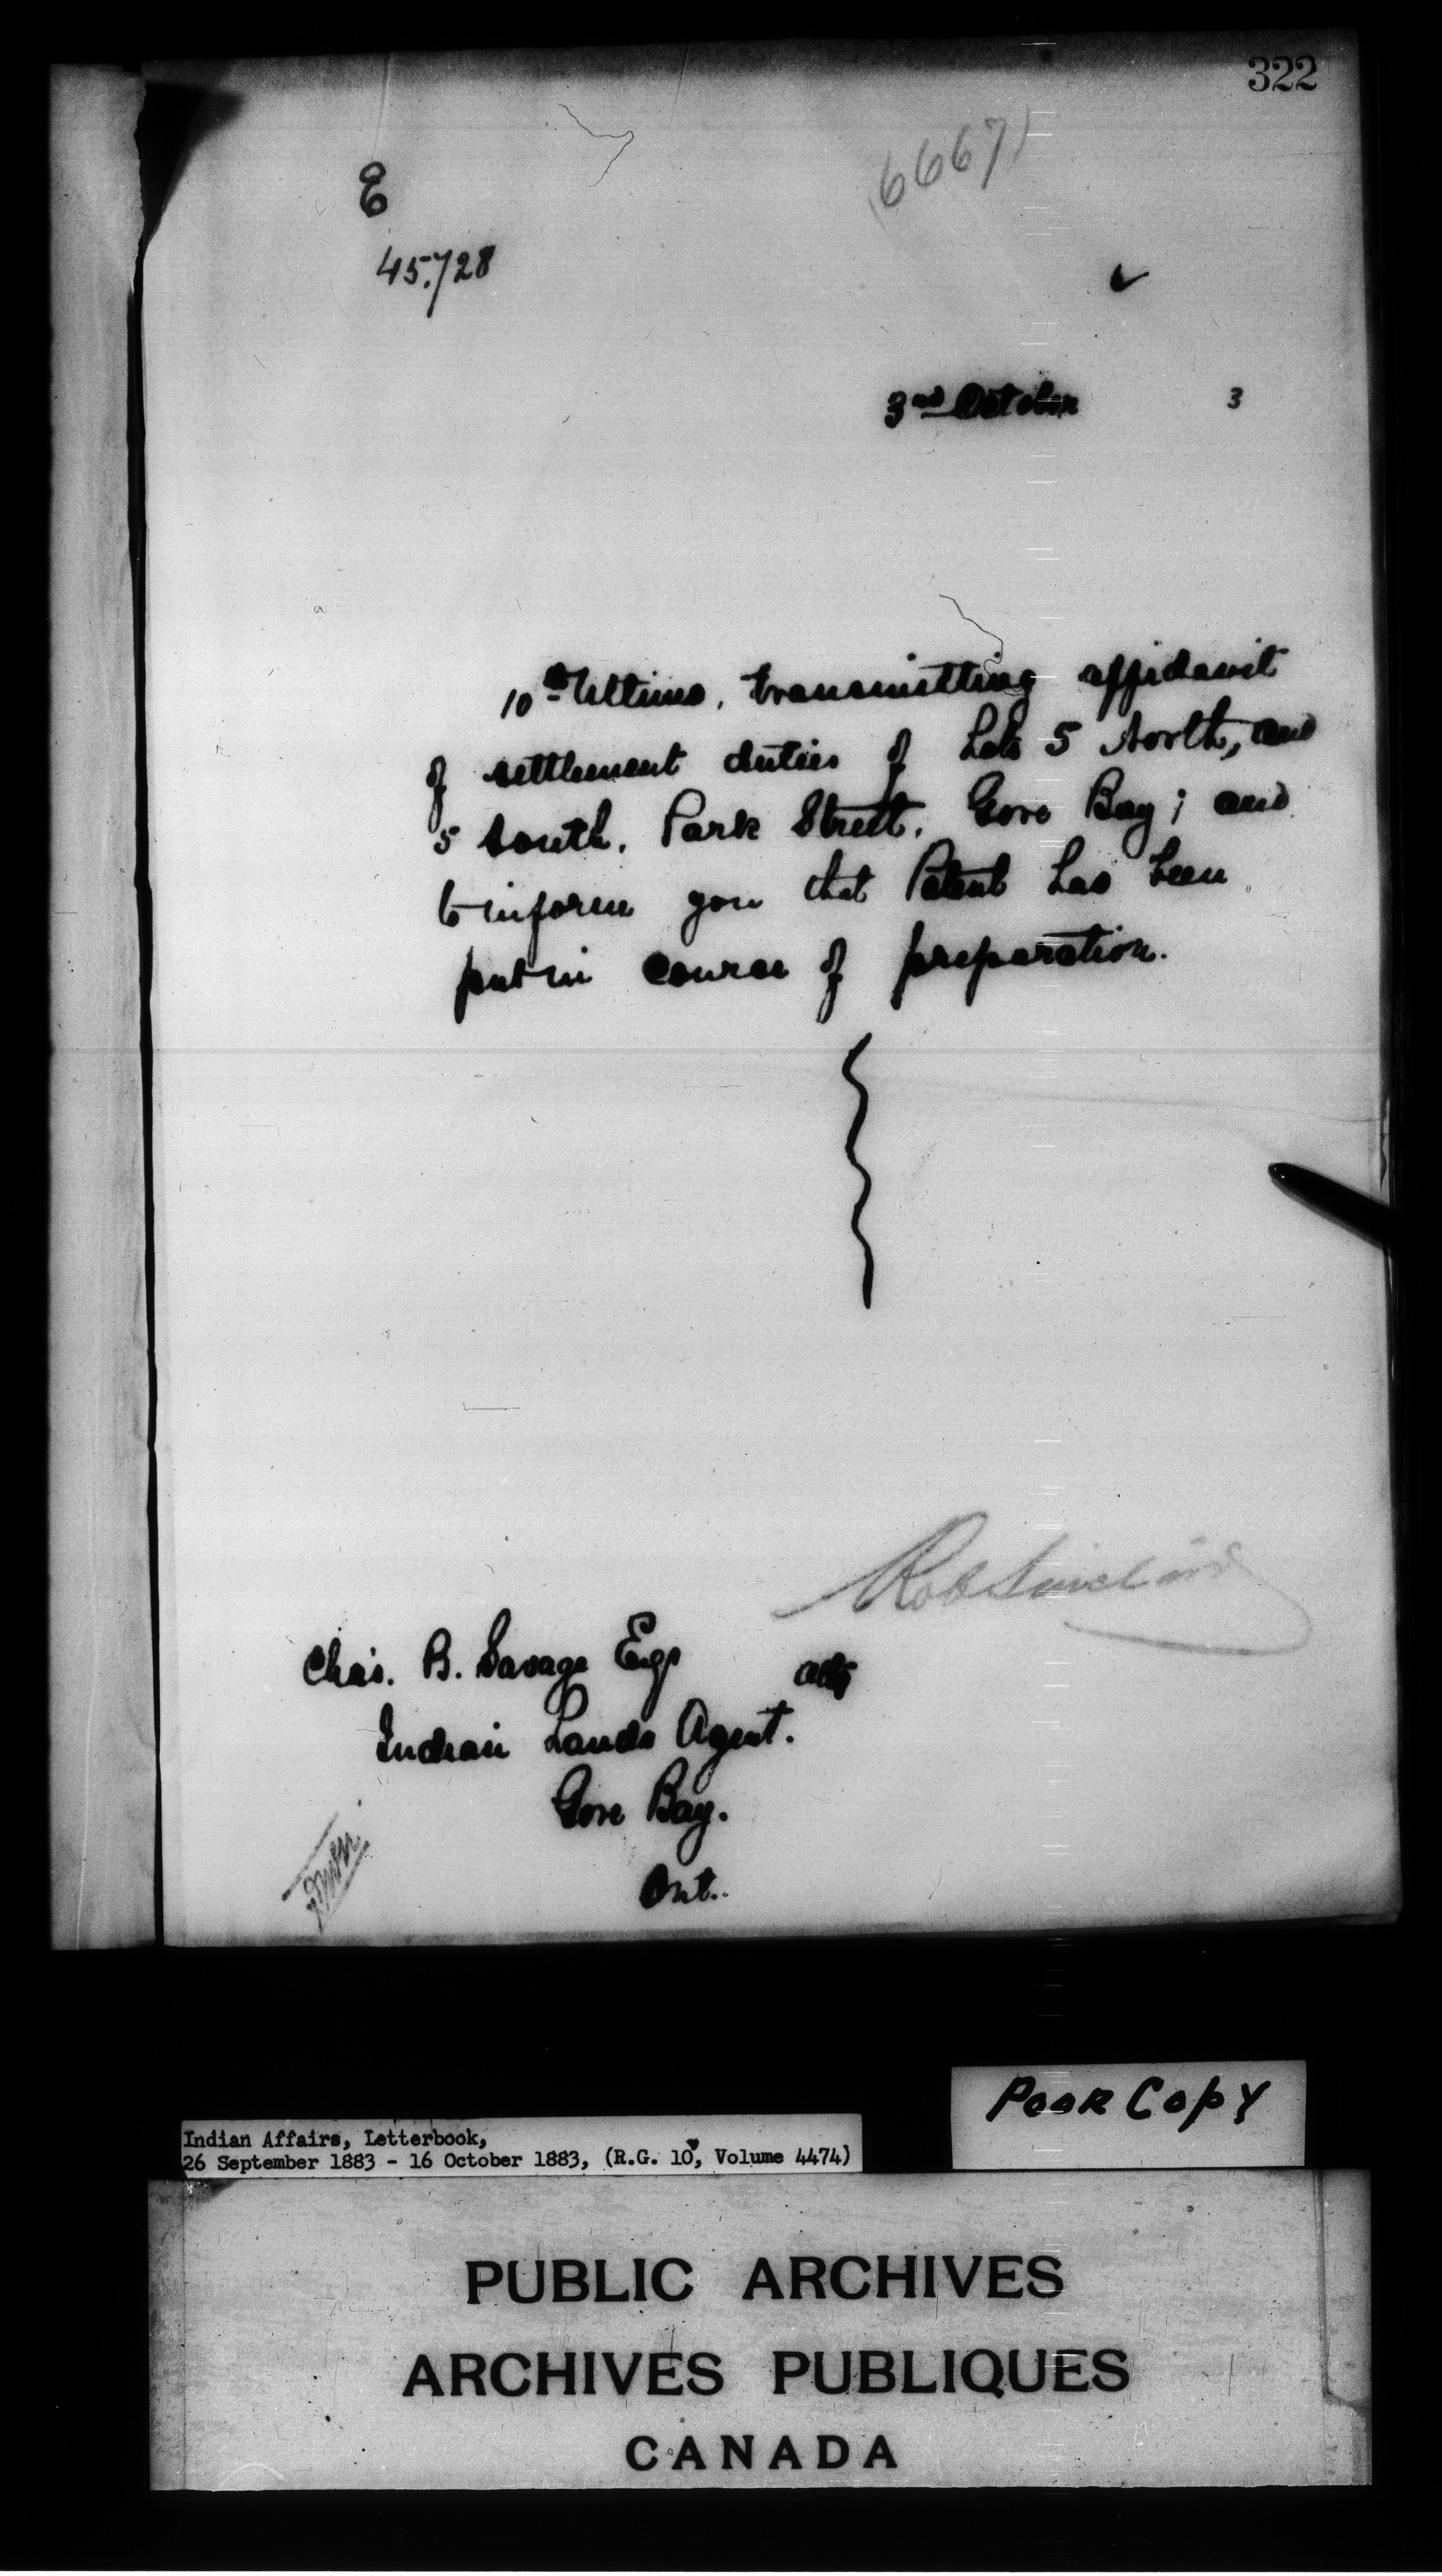 322
6667
E
45.728
3rd October 3
10th Ultimo, transmitting affidavit
of settlement duties of Lots 5 North, and
5 South, Park Street, Gore Bay; and
to inform you that Patent has been
put in course of preparation.
Rob Sinclair
Chas. B. Savage Esqr
actg
Indian Lands Agent.
Gore Bay.
Ont..
Poor Copy
Indian Affairs, Letterbook,
26 September 1883 - 16 October 1883, (R.G. 10, Volume 4474)
PUBLIC ARCHIVES
ARCHIVES PUBLIQUES
CANADA